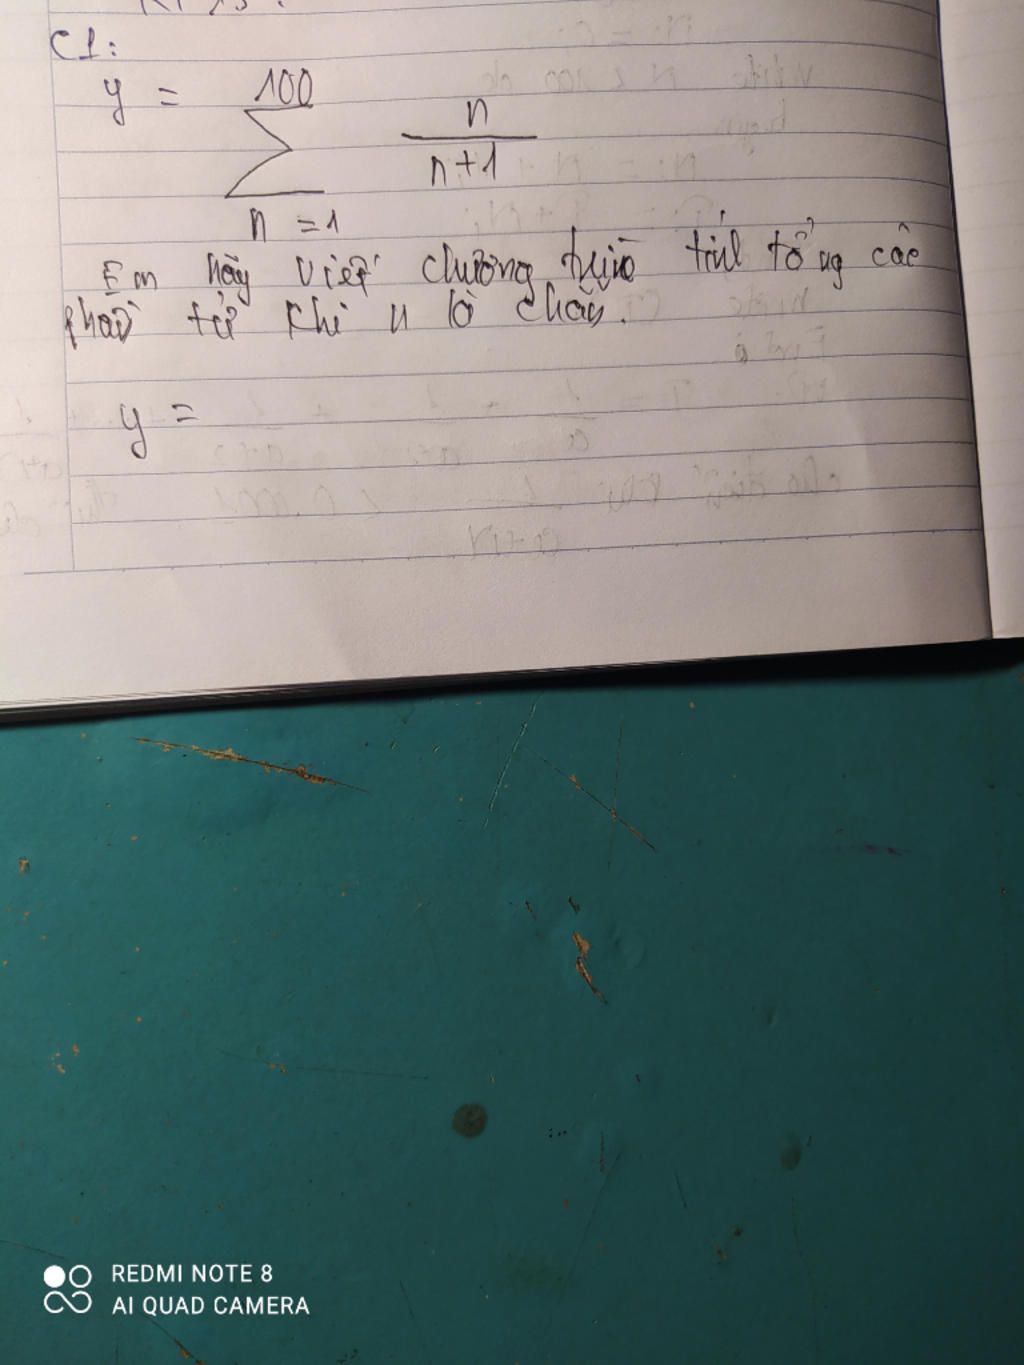 C1:
y =
100
∑
n
n+1
n = 1
Em hãy viết chương trình tính tổng các
phần tử khi n là chẵn.
y =
REDMI NOTE 8
AI QUAD CAMERA